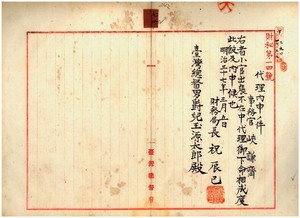 財秘第一四號
代理內申ノ件
事務官 峽謙齊
右者小官出張不在中代理御下命相成度
此段及內申候也
明治三十七年三月 日
財務局長 祝辰巳
臺灣總督男爵兒玉源太郎殿